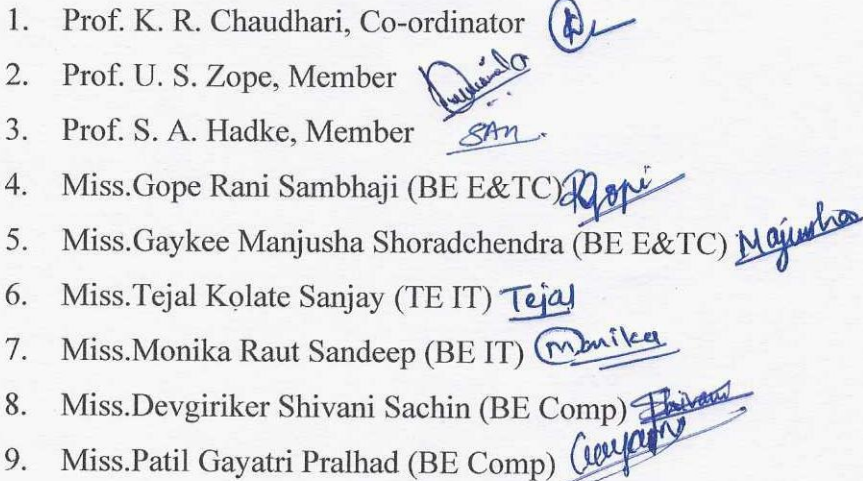 1. Prof. K. R. Chaudhari, Co-ordinator
2. Prof. U. S. Zope, Member
3. Prof. S. A. Hadke, Member SAH.
4. Miss.Gope Rani Sambhaji (BE E&TC) RGopi
5. Miss.Gaykee Manjusha Shoradchendra (BE E&TC) Majusha
6. Miss.Tejal Kolate Sanjay (TE IT) Tejal
7. Miss.Monika Raut Sandeep (BE IT) Monika
8. Miss.Devgiriker Shivani Sachin (BE Comp) Shivani
9. Miss.Patil Gayatri Pralhad (BE Comp) Gayatri